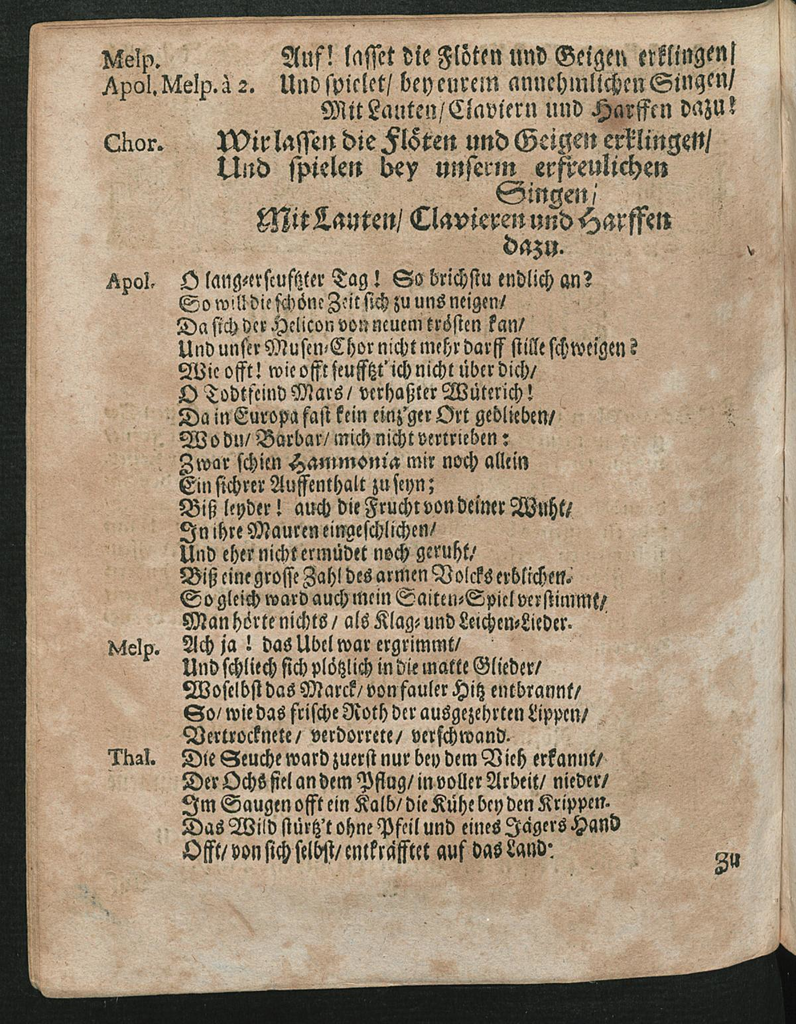 Melp. Auf! lasset die Flöten und Geigen erklingen/
Apol. Melp. à 2. Und spielet/ bey eurem annehmlichen Singen/
Mit Lauten/ Claviern und Harffen dazu!
Chor. Wir lassen die Flöten und Geigen erklingen/
Und spielen bey unserm erfreulichen
Singen/
Mit Lauten/ Clavieren und Harffen
dazu.
Apol. O lang-erseufftzter Tag! So brichstu endlich an?
So will die schöne Zeit sich zu uns neigen/
Da sich der Helicon von neuem trösten kan/
Und unser Musen-Chor nicht mehr darff stille schweigen?
Wie offt! wie offt seufftzt' ich nicht über dich/
O Todtfeind Mars/ verhaßter Wüterich!
Da in Europa fast kein einz'ger Ort geblieben/
Wo du/ Barbar/ mich nicht vertrieben:
Zwar schien Hammonia mir noch allein
Ein sichrer Auffenthalt zu seyn;
Biß leyder! auch die Frucht von deiner Wuht/
In ihre Mauren eingeschlichen/
Und eher nicht ermüdet noch geruht/
Biß eine grosse Zahl des armen Volcks erblichen.
So gleich ward auch mein Saiten-Spiel verstimmt/
Man hörte nichts/ als Klag- und Leichen-Lieder.
Melp. Ach ja! das Ubel war ergrimmt/
Und schliech sich plötzlich in die matte Glieder/
Woselbst das Marck/ von fauler Hitz entbrannt/
So/ wie das frische Roth der ausgezehrten Lippen/
Vertrocknete/ verdorrete/ verschwand.
Thal. Die Seuche ward zuerst nur bey dem Vieh erkannt/
Der Ochs fiel an dem Pflug/ in voller Arbeit/ nieder/
Im Saugen offt ein Kalb/ die Kühe bey den Krippen.
Das Wild stürtz't ohne Pfeil und eines Jägers Hand
Offt/ von sich selbst/ entkräfftet auf das Land:
Zu